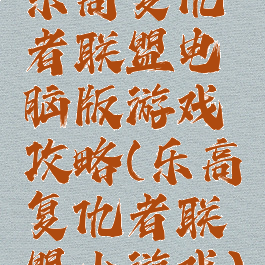 乐高复仇
者联盟电
脑版游戏
攻略(乐高
复仇者联
盟小游戏)